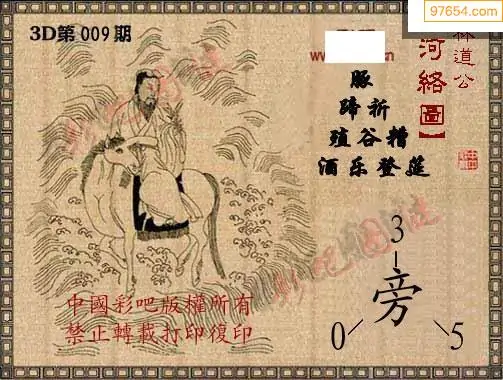 97654.com
3D第009期
林道公
河絡圖】
豚
蹄祈
殖谷糟
酒乐登筵
3
旁
0
5
中國彩吧版權所有
禁止轉載打印復印